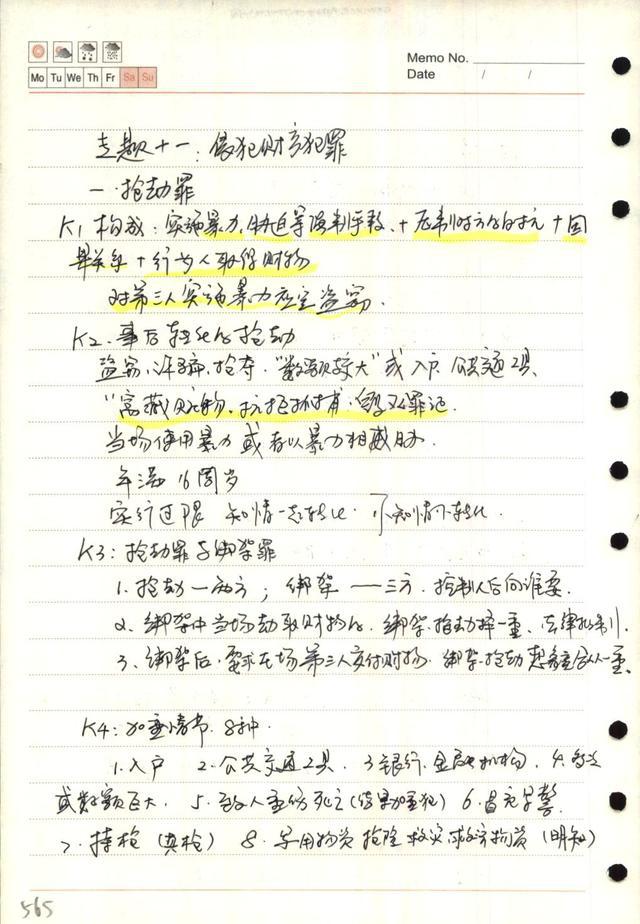 Memo No.
Date / /
Mo Tu We Th Fr Sa Su
专题十一：侵犯财产犯罪
一.抢劫罪
K1 构成：实施暴力、胁迫等强制手段、+压制对方的反抗+因
果关系+行为人取得财物
对第三人实施暴力应定盗窃.
K2.事后转化的抢劫
盗窃、诈骗、抢夺."数额较大"或入户、公共交通工具、
"窝藏赃物、抗拒抓捕、毁灭罪证.
当场使用暴力或者以暴力相威胁.
年满16周岁
实行过限 知情一起转化.不知情不转化.
K3：抢劫罪与绑架罪
1.抢劫—两方；绑架——三方.控制人后向谁要.
2、绑架中当场劫取财物的、绑架、抢劫择一重、
3、绑架后、要求在场第三人交付财物.绑架、抢劫想象竞合从一重.
K4：加重情节.8种.
1.入户 2.公共交通工具. 3银行.金融机构、4.多次
或数额巨大. 5.致人重伤死亡(结果加重犯) 6.冒充军警.
7.持枪(真枪) 8.军用物资 抢险 救灾 救济物资(明知)
565